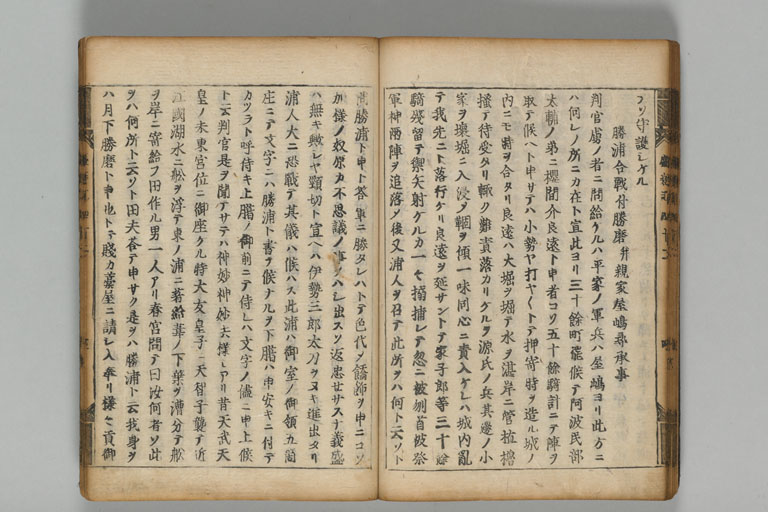 フソ守護シケル
勝浦合戦付勝磨并親家屋嶋尋承事
判官虜ノ者ニ問給ケルハ平家ノ軍兵ハ屋嶋ヨリ此方ニ
ハ何レノ所ニカ在ト宣此ヨリ三十餘町罷候テ阿波民部
太輔ノ弟ニ櫻間介良遠ト申者コソ五十餘騎計ニテ陣ヲ
取テ候ヘト申サテハ小勢ヤ打ヤ〱トテ押寄時ヲ造ル城ノ
内ニモ時ヲ合タリ良遠ハ大堀ヲ堀テ水ヲ湛岸ニ管植櫓
掻テ待受タリ輙ク難責落カリケルヲ源氏ノ兵其邊ノ小
家ヲ壊堀ニ入浸ノ鞆ヲ傾一味同心ニ責入ケレハ城内乱
テ我先ニト落行ケリ良遠ヲ延サントテ家子郎等三十餘
騎残留テ禦矢射ケルカ一々搦捕レテ忽ニ被刎首被祭
軍神西陣ヲ追落ノ後又浦人ヲ召テ此所ヲハ何ト云ソト
尚勝浦ト申ト答軍ニ勝タレハトテ色代ヲ矯飾ヲ申ニコソ
加様ノ奴原カ不思議ノ事ヲハシ出スソ返忠セサスナ義盛
ハ無キ歟シヤ頸切ト宣ヘハ伊勢三郎太刀ヲヌキ進出タリ
浦人大ニ恐戦テ其儀ハ候ハス此浦ハ御室ノ御領五箇
庄ニテ文字ニハ勝浦ト書テ候ナルヲ下臈ハ申安キニ付テ
カツラト呼侍キ上臈ノ御前ニテ侍レハ文字ノ儘ニ申上候
ト云判官是ヲ聞テサテハ神妙神妙夫様シアリ昔天武天
皇ノ未東宮位ニ御座ケル時大友皇子ニ天智子襲テ近
江國湖水ニ舩ヲ浮テ東ノ浦ニ着給葦ノ下葉ヲ漕分テ舩
ヲ岸ニ寄給フ田作ル男一人アリ春宮問テ曰汝何者ソ此
ヲハ何所ト云ソト田夫答テ申サク是ヲハ勝浦ト云我身ヲ
ハ月下勝磨ト申也トテ賤カ菴屋ニ請シ入奉リ様々貢御